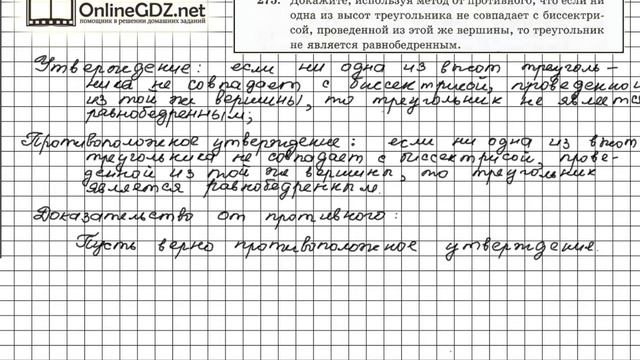 OnlineGDZ.net
помощник в решении домашних заданий
275. Докажите, используя метод от противного, что если ни
одна из высот треугольника не совпадает с биссектри-
сой, проведенной из этой же вершины, то треугольник
не является равнобедренным.
Утверждение: если ни одна из высот треуголь-
ника не совпадает с биссектрисой, проведенной
из той же вершины, то треугольник не являетс
равнобедренным;
Противоположное утверждение: если ни одна из высот
треугольника не совпадает с биссектрисой, прове-
денной из той же вершины, то треугольник
является равнобедренным.
Доказательство от противного:
Пусть верно противоположное утверждение.